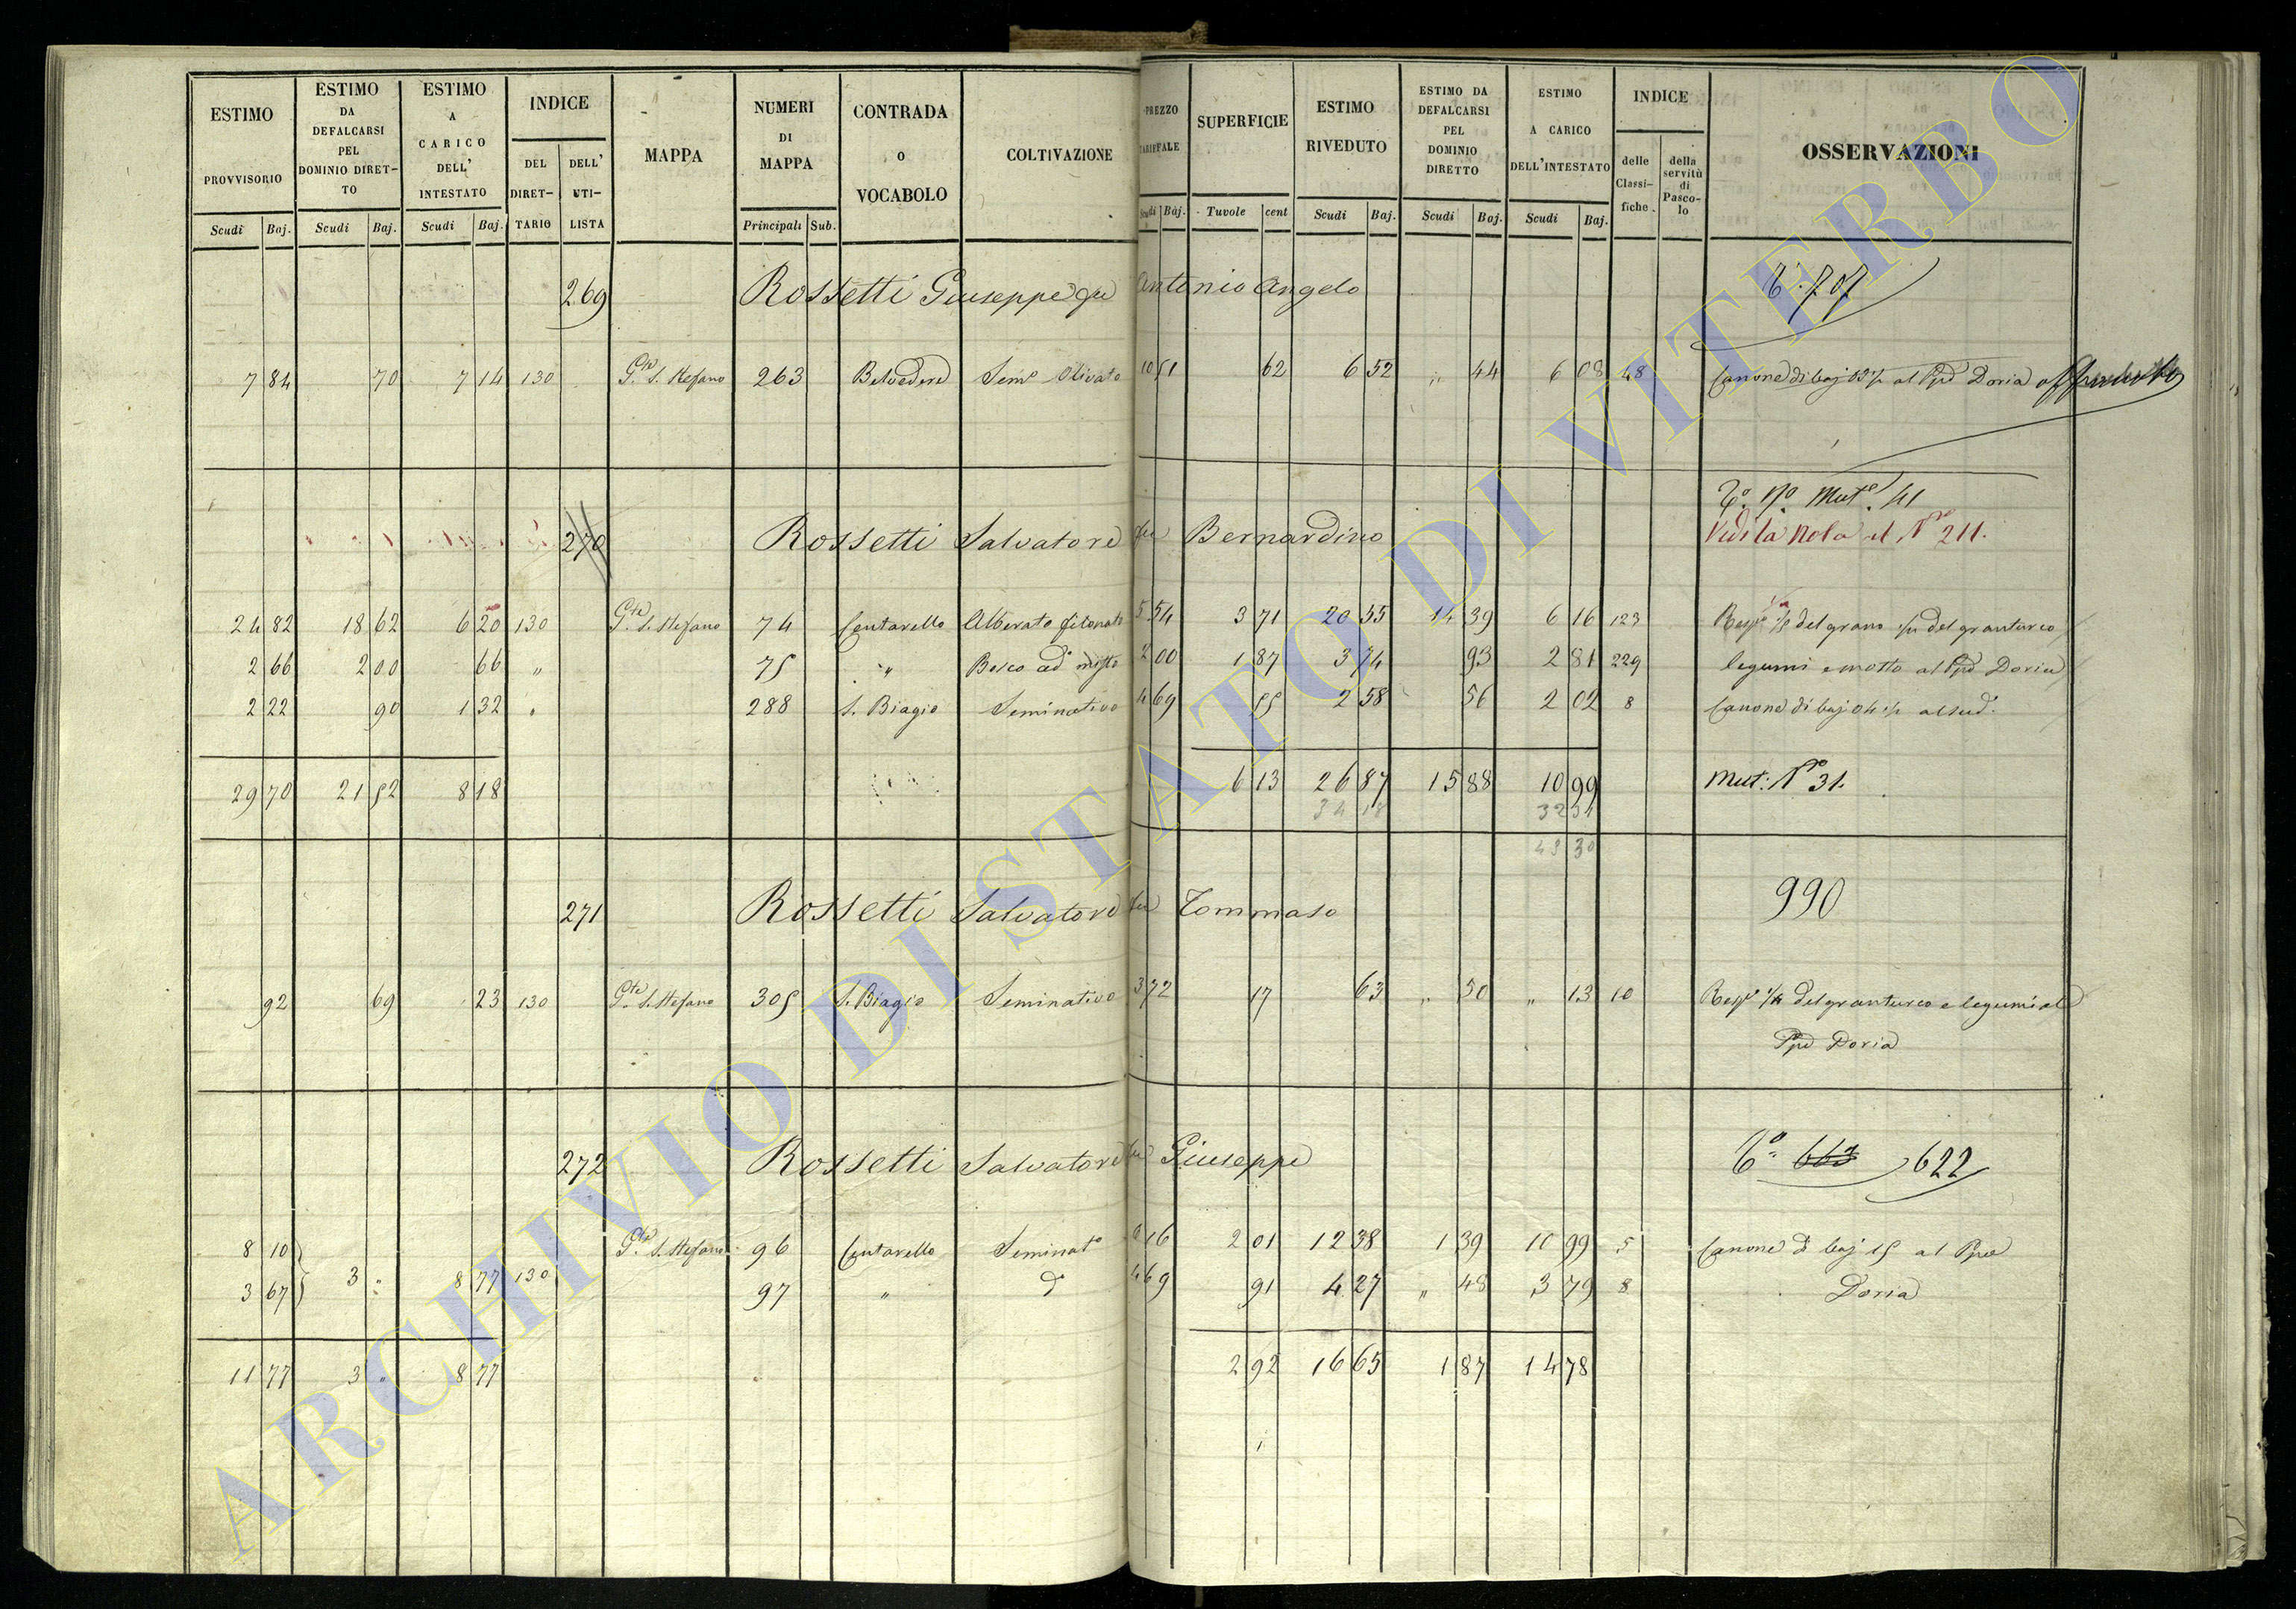 ESTIMO PROVVISORIO Scudi Baj.
ESTIMO DA DEFALCARSI PEL DOMINIO DIRET-TO Scudi Baj.
ESTIMO A CARICO DELL' INTESTATO Scudi Baj.
INDICE DEL DIRET-TARIO DELL' UTI-LISTA
MAPPA
NUMERI DI MAPPA Principali Sub.
CONTRADA O VOCABOLO
COLTIVAZIONE
PREZZO TARIFFALE Scudi Baj.
SUPERFICIE Tavole cent
ESTIMO RIVEDUTO Scudi Baj.
ESTIMO DA DEFALCARSI PEL DOMINIO DIRETTO Scudi Baj.
ESTIMO A CARICO DELL'INTESTATO Scudi Baj.
INDICE delle Classi-fiche della servitù di Pasco-lo
OSSERVAZIONI
269 Rossetti Giuseppe qu Antonio Angelo
7 84 70 7 14 130 S. Stefano 263 Belvedere Semo Olivato 10 51 62 6 52 " 44 6 08 48 Canone di baj al Ppe Doria
To No Muto 41
270 Rossetti Salvatore qu Bernardino Vedi la Nota al No 211.
24 82 18 62 6 20 130 S. Stefano 74 Centarello Alberato filonato 5 54 3 71 20 55 14 39 6 16 123 del grano del granturco
2 66 2 00 66 " 75 " Bosco ad misto 2 00 1 87 3 74 93 2 81 229 legumi e mosto al Ppe Doria
2 22 90 1 32 " 288 S. Biagio Seminativo 4 69 55 2 58 56 2 02 8 Canone di baj 04 1/2 al sud.
29 70 21 52 8 18 6 13 26 87 15 88 10 99 Mut: No 31.
34 18 32 31
43 30
271 Rossetti Salvatore qu Tommaso 990
92 69 23 130 S. Stefano 305 S. Biagio Seminativo 3 72 17 63 " 50 " 13 10 del granturco e legumi al
Ppe Doria
272 Rossetti Salvatore qu Giuseppe To 663 622
8 10 S. Stefano 96 Centarello Seminato 6 16 2 01 12 38 1 39 10 99 5 Canone di baj 15 al Ppe
3 67 3 " 8 77 130 97 " do 4 69 91 4 27 " 48 3 79 8 Doria
11 77 3 " 8 77 2 92 16 65 1 87 14 78
ARCHIVIO DI STATO DI VITERBO